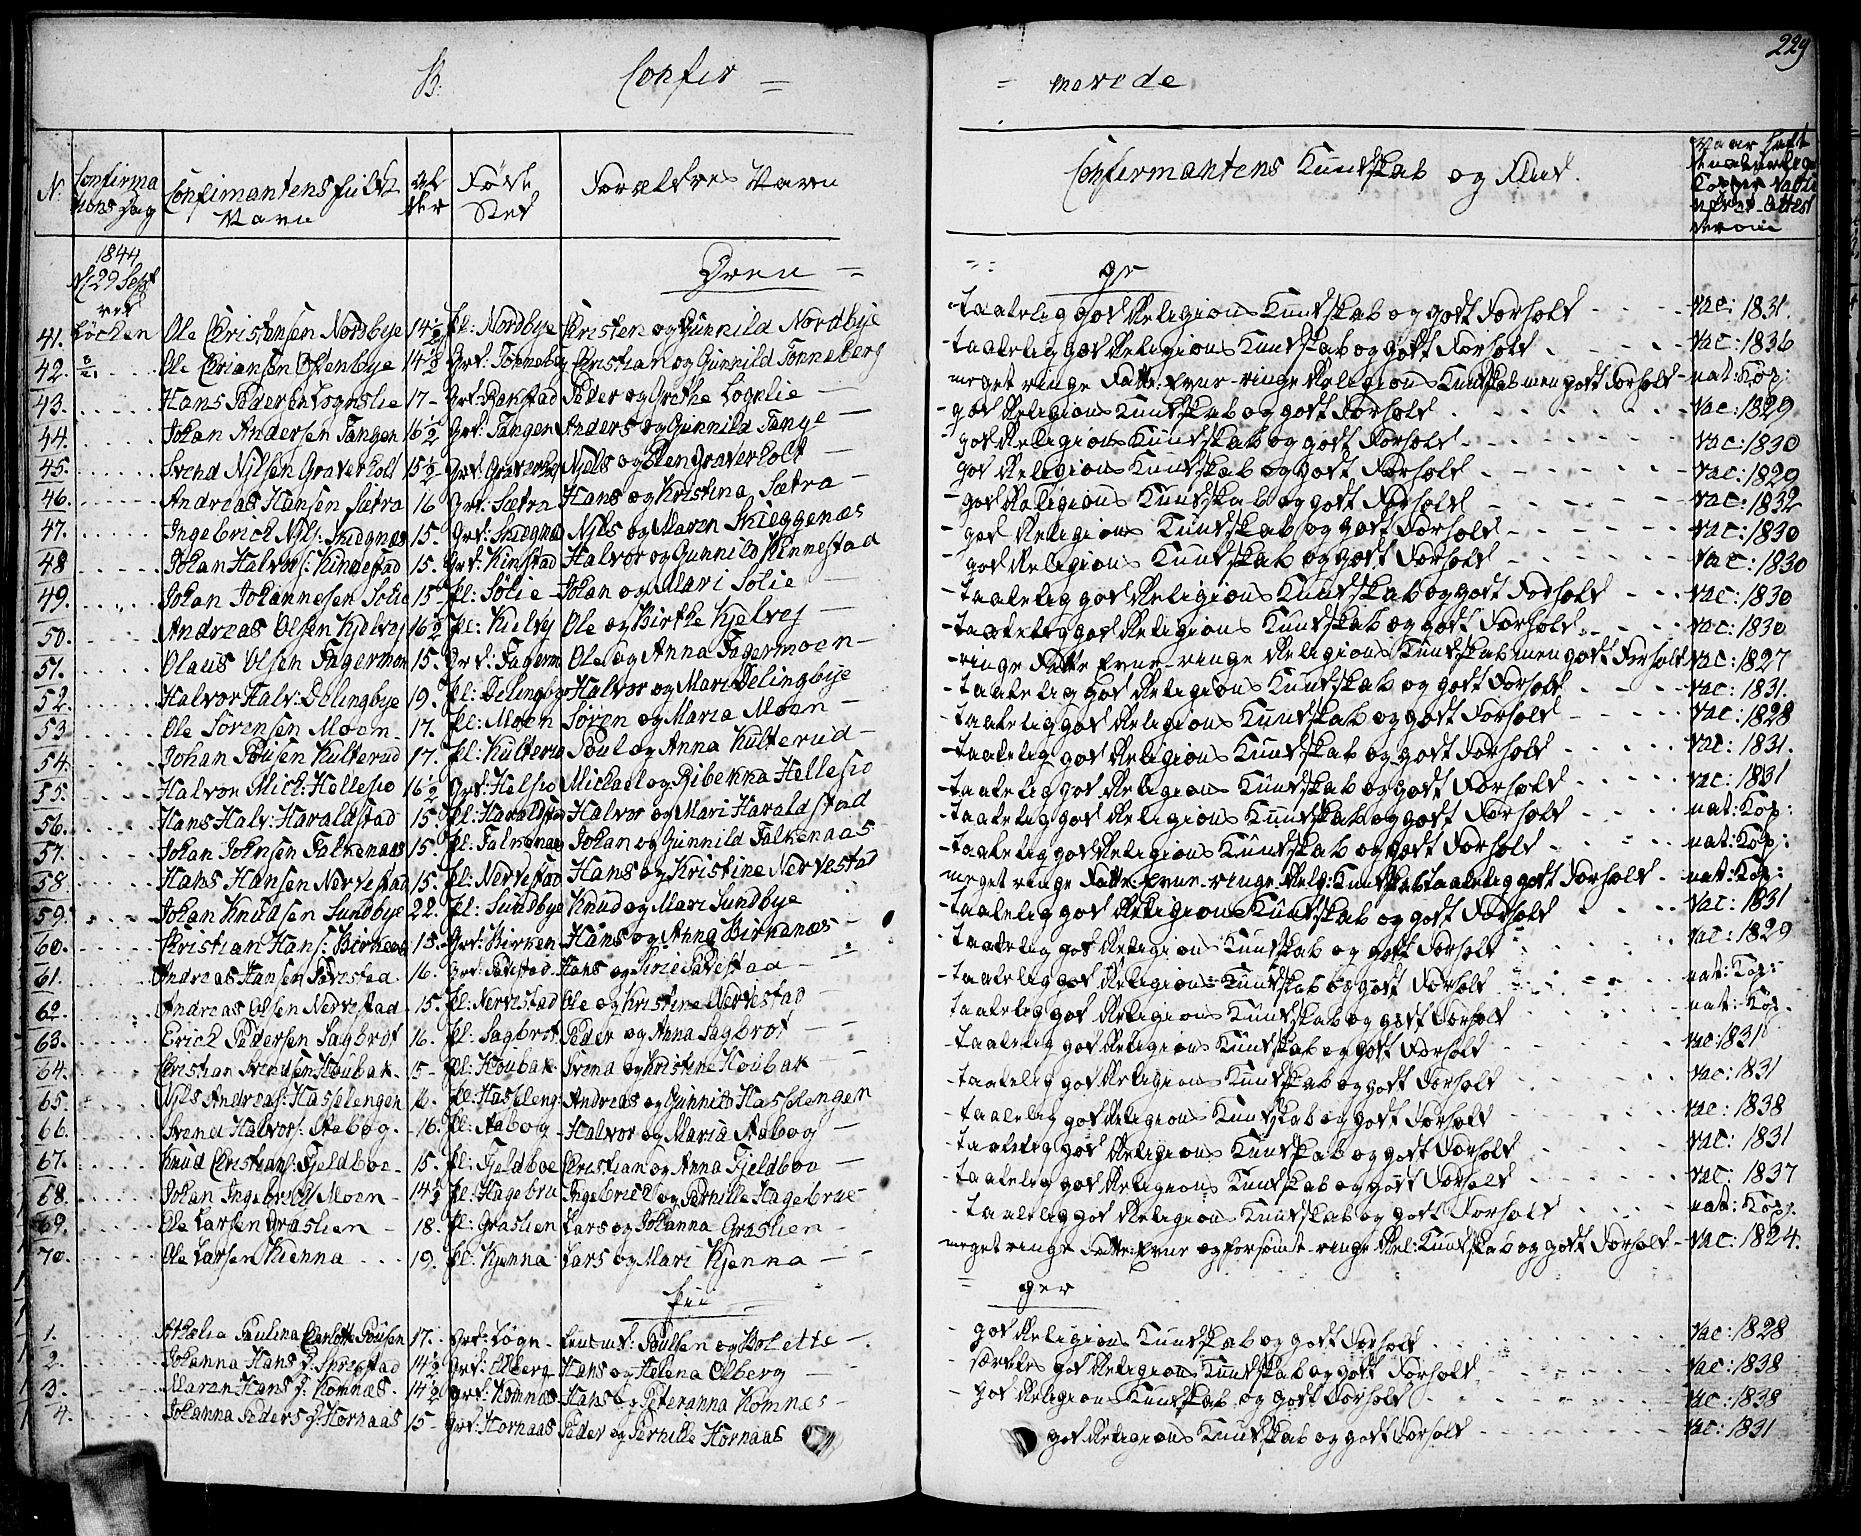 B. Confir = = merede 229
N: Confirma tions Dag Confirmantens fulde Navn Al der Føde Sted Forældres Navn Confirmantens Kundskab og Flid.
1844 d. 29 Sept ved Løchen
Dren = = : ge
41. Ole Christensen Nordbye 14½ pl: Nordbye Christen og Gunnild Nordbye - taalelig god Religions Kundskab og godt Forhold - vac: 1831.
42. Ole Ofstenbye 14½ Grd: Tonneberg Christian og Gunnild Tonneberg - taalelig god Religions Kundskab og godt Forhold - vac: 1836
43. Hans Pedersen Lognlie 17 - Grd: Peder og Grethe Lognlie - meget ringe Fatte: Evne - ringe Religions Kundskab men godt Forhold - nat: Kop:
44. Johan Andersen Tangen 16½ Grd: Tangen Anders og Gunnild Tange - god Religions Kundskab og godt Forhold - vac: 1829
45. Svend Nilsen Graverholt 15½ Grd: Graverholt Niels og Graverholt - god Religions Kundskab og godt Forhold - vac: 1830
46. Andreas Hansen Sætra 16 Grd: Sætra Hans og Kristina Sætra - god Religions Kundskab og godt Forhold - vac: 1829
47. Ingebrich Nils: Skiegnæs 15. Grd: Skiegnæs Nils og Maren Skieggenæs - god Religions Kundskab og godt Forhold - vac: 1832
48 Johan Halvors: Kinnestad 15. Grd: Kinstad Halvor og Gunnild Kinnestad - god Religions Kundskab og godt Forhold - vac: 1830
49. Johan Johannesen Solie 15 pl: Solie - Johan og Mari Solie - god Religions Kundskab og godt Forhold - vac: 1830
50. Andreas Olsen Kjelvej 16½ pl: Kielvej Ole og Birthe Kjelvej - taalelig god Religions Kundskab og godt Forhold - vac: 1830
51. Olaus Olsen Fagermoen 15. Grd: Fagerm Ole og Anna Fagermoen - taalelig god Religions Kundskab og godt Forhold - vac: 1830
52. Halvor Halv: Delingbye 19. pl: Delingbye Halvor og Mari Delingbye - ringe Fatte Evne - ringe Religions Kundskab men godt Forhold vac: 1827
53 Ole Sørensen Moen - 17. pl: Moen Søren og Maria Moen - taalelig god Religions Kundskab og godt Forhold - vac: 1831.
54. Johan Poulsen Kulterud 17. pl: Kulterud Poul og Anna Kulterud - taalelig god Religions Kundskab og godt Forhold - vac: 1828
55. Halvor Mich: Hellesio 16½ Grd: Helsio Michael og Hellesio - taalelig god Religions Kundskab og godt Forhold - vac: 1831.
56. Hans Halv: Haraldstad 15. pl: Haraldstad Halvor og Mari Haraldstad - taalelig god Religions Kundskab og godt Forhold - vac: 1831
57. Johan Johnsen Falkenaas 15 pl: Falkenaas Johan og Gunnild Falkenaas - taalelig god Religions Kundskab og godt Forhold - nat: Kop:
58. Hans Hansen Nervestad 15. pl: Nervestad Hans og Kristine Nervestad - taalelig god Religions Kundskab og godt Forhold - nat: Kop:
59. Johan Knudsen Sundbye 22. pl: Sundbye Knud og Mari Sundbye meget ringe Fatte: Evne - ringe Relg: Kundskab taalelig godt Forhold - nat: Kop:
60. Christian Hans: Birkenæs 15. Grd: Birken Hans og Anna Birkenæs - taalelig god Religions Kundskab og godt Forhold - vac: 1831
61. Andreas Hansen 16. Hans og Sirie - taalelig god Religions Kundskab og godt Forhold - vac: 1829
62. Andreas Olsen Nervestad - 15. pl: Nervestad Ole og Kristine Nervestad - taalelig god Religions Kundskab og godt Forhold - nat: Kop:
63. Erich Pedersen Sagbrot 16. pl: Sagbrot Peder og Anna Sagbrot - taalelig god Religions Kundskab og godt Forhold - nat: Kop.
64. Christian Svendsen Houbak. 15 - pl: Houbak Svend og Kristine Houbak - taalelig god Religions Kundskab og godt Forhold - vac: 1831
65. Nils Andreas: Hasselengen pl: Hasseleng Andreas og Gunnild Hasselengen - taalelig god Religions Kundskab og godt Forhold - vac: 1831
66. Svend Halvors: Aabog. - 16. pl: Aabog - Halvor og Maria Aabog - taalelig god Religions Kundskab og godt Forhold - vac: 1838
67. Knud Christians: Fjeldboe - 15. pl: Fjeldboe Christian og Anna Fjeldboe - taalelig god Religions Kundskab og godt Forhold - vac: 1831
68. Johan Ingebrichs: Moen - 14½ pl: Hagebru Ingebrich og Pernille Hagebrue - taalelig god Religions Kundskab og godt Forhold - vac: 1837
69. Ole Larsen Graslien - 18. pl: Graslien Lars og Johanna Graslien - taalelig god Religions Kundskab og godt Forhold - nat: Kop:
70. Ole Larsen Kienna - 19. pl: Kjenna Lars og Mari Kjenna - meget ringe Fatte: Evne og forsømt - ringe Rel: Kundskab og godt Forhold - vac: 1824.
Pii = ger
1. Athalia Paulina Charlotte Poulsen 17. Grd: Løgn - Lensmd: Poulsen og Bolette - god Religions Kundskab og godt Forhold - vac: 1828
2. Johanna Hans D: 14½ Grd: Elberg Hans og Helena Olberg - særdeles god Religions Kundskab og godt Forhold - vac: 1838
3. Maren Hans D: Komnæs. 14½ Grd: Komnæs Hans og Peteranna Komnes - god Religions Kundskab og godt Forhold - vac: 1838
4. Johanna Peders D: Hornaas 15 - Grd: Hornaas Peder og Pernille Hornaas god Religions Kundskab og godt Forhold - vac: 1831